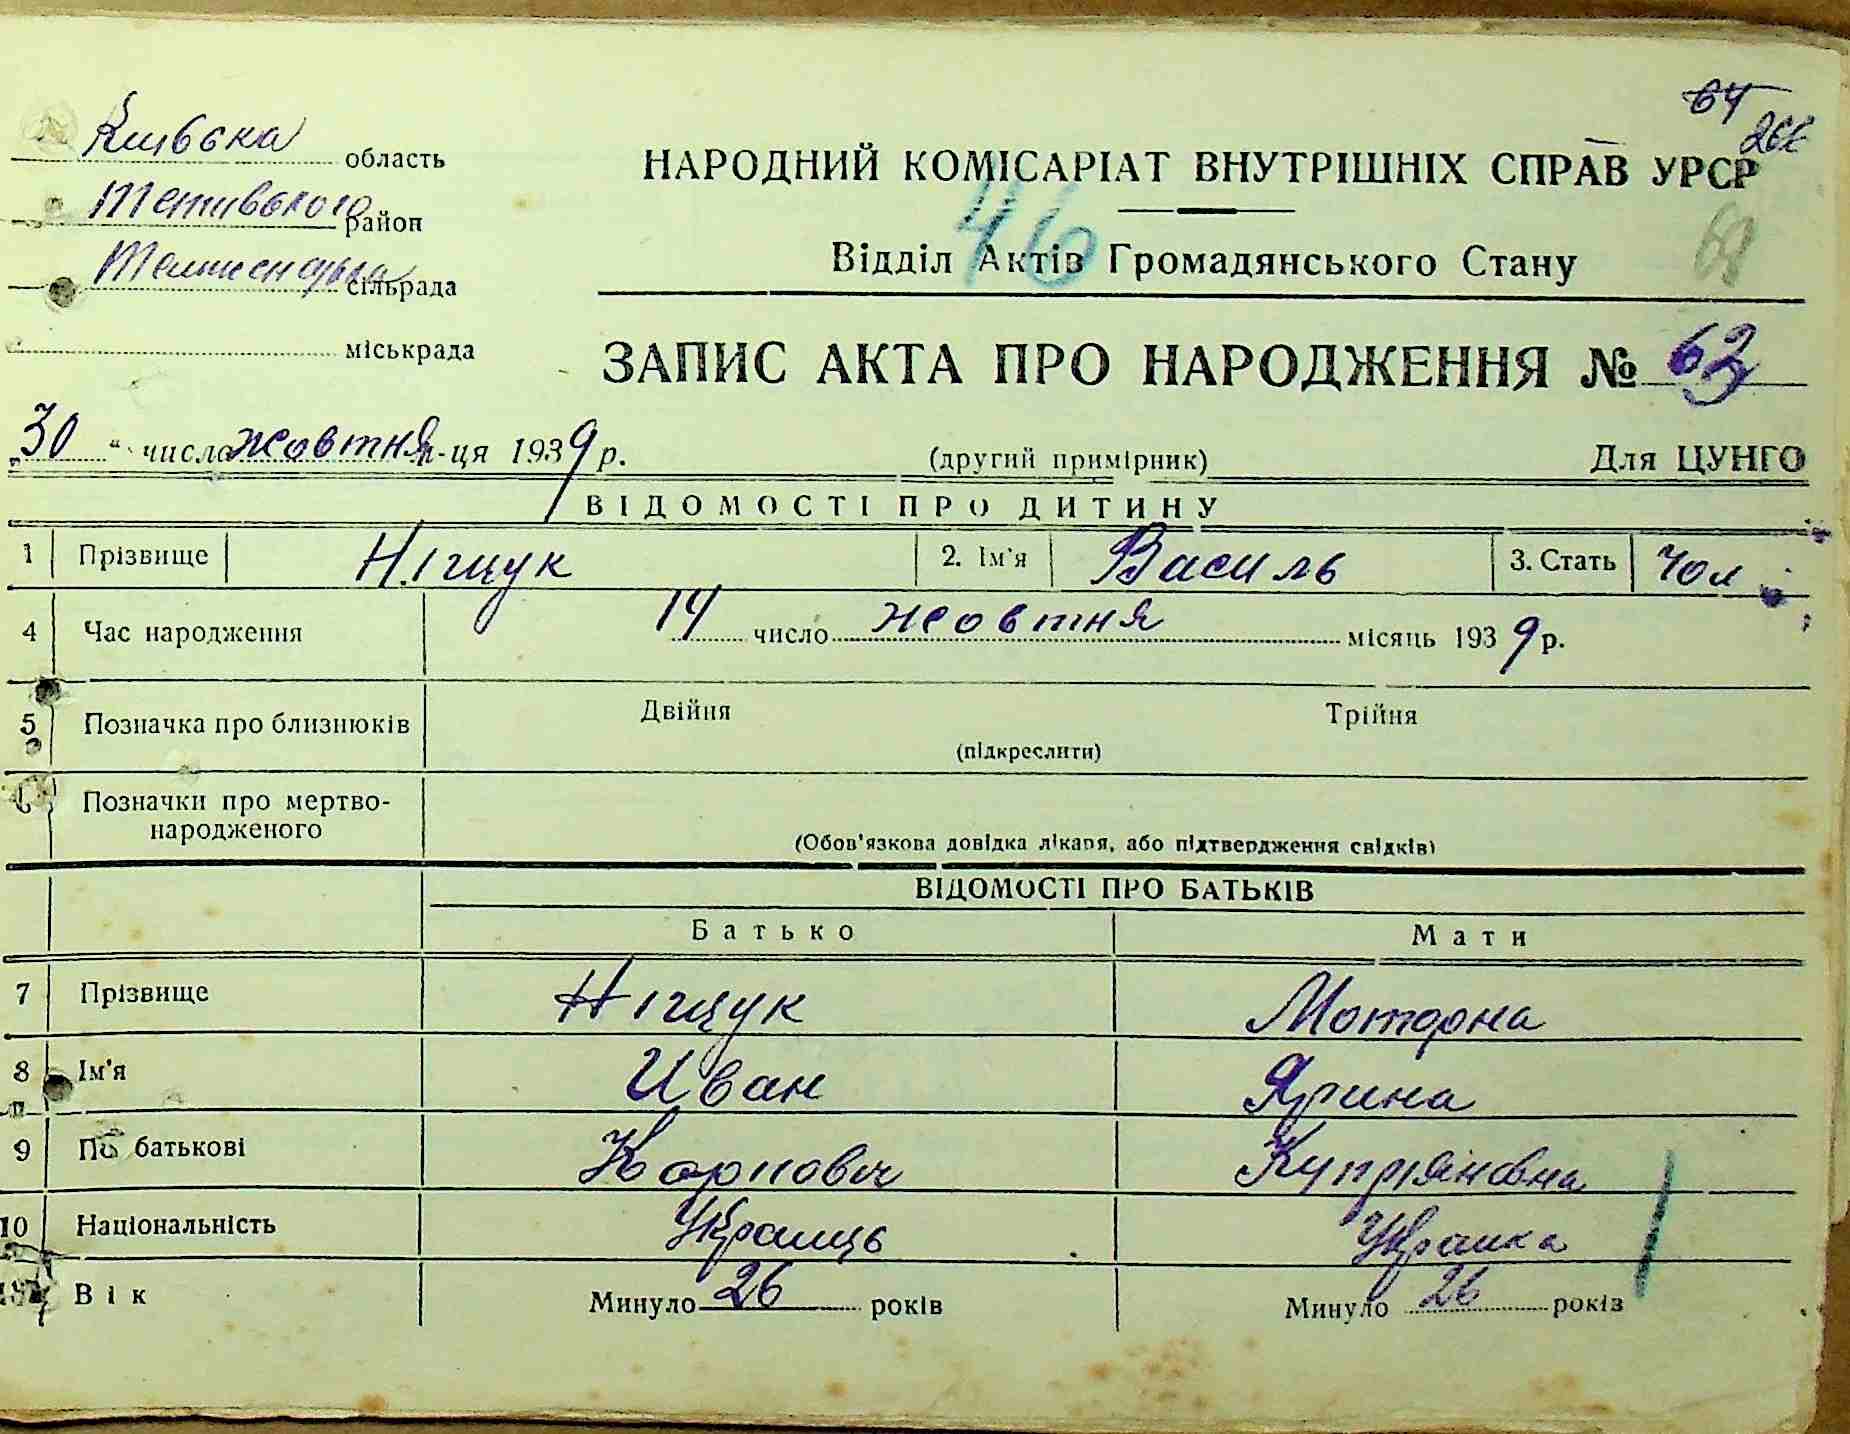 Київська область
Тетивського район
сільрада
міськрада
64
НАРОДНИЙ КОМІСАРІАТ ВНУТРІШНІХ СПРАВ УРСР
46
Відділ Актів Громадянського Стану
68
ЗАПИС АКТА ПРО НАРОДЖЕННЯ № 63
„30“ число жовтня м-ця 1939 р. (другий примірник) Для ЦУНГО
ВІДОМОСТІ ПРО ДИТИНУ
1 Прізвище Ніщук 2. Ім'я Василь 3. Стать чол
4 Час народження 14 число жовтня місяць 1939 р.
5 Позначка про близнюків Двійня Трійня
(підкреслити)
6 Позначки про мертво-
народженого
(Обов'язкова довідка лікаря, або підтвердження свідків)
ВІДОМОСТІ ПРО БАТЬКІВ
Батько Мати
7 Прізвище Ніщук Моторна
8 Ім'я Иван Ярина
9 По батькові Карпович Купріяновна
10 Національність Украинць Украинка
Вік Минуло 26 років Минуло 26 років